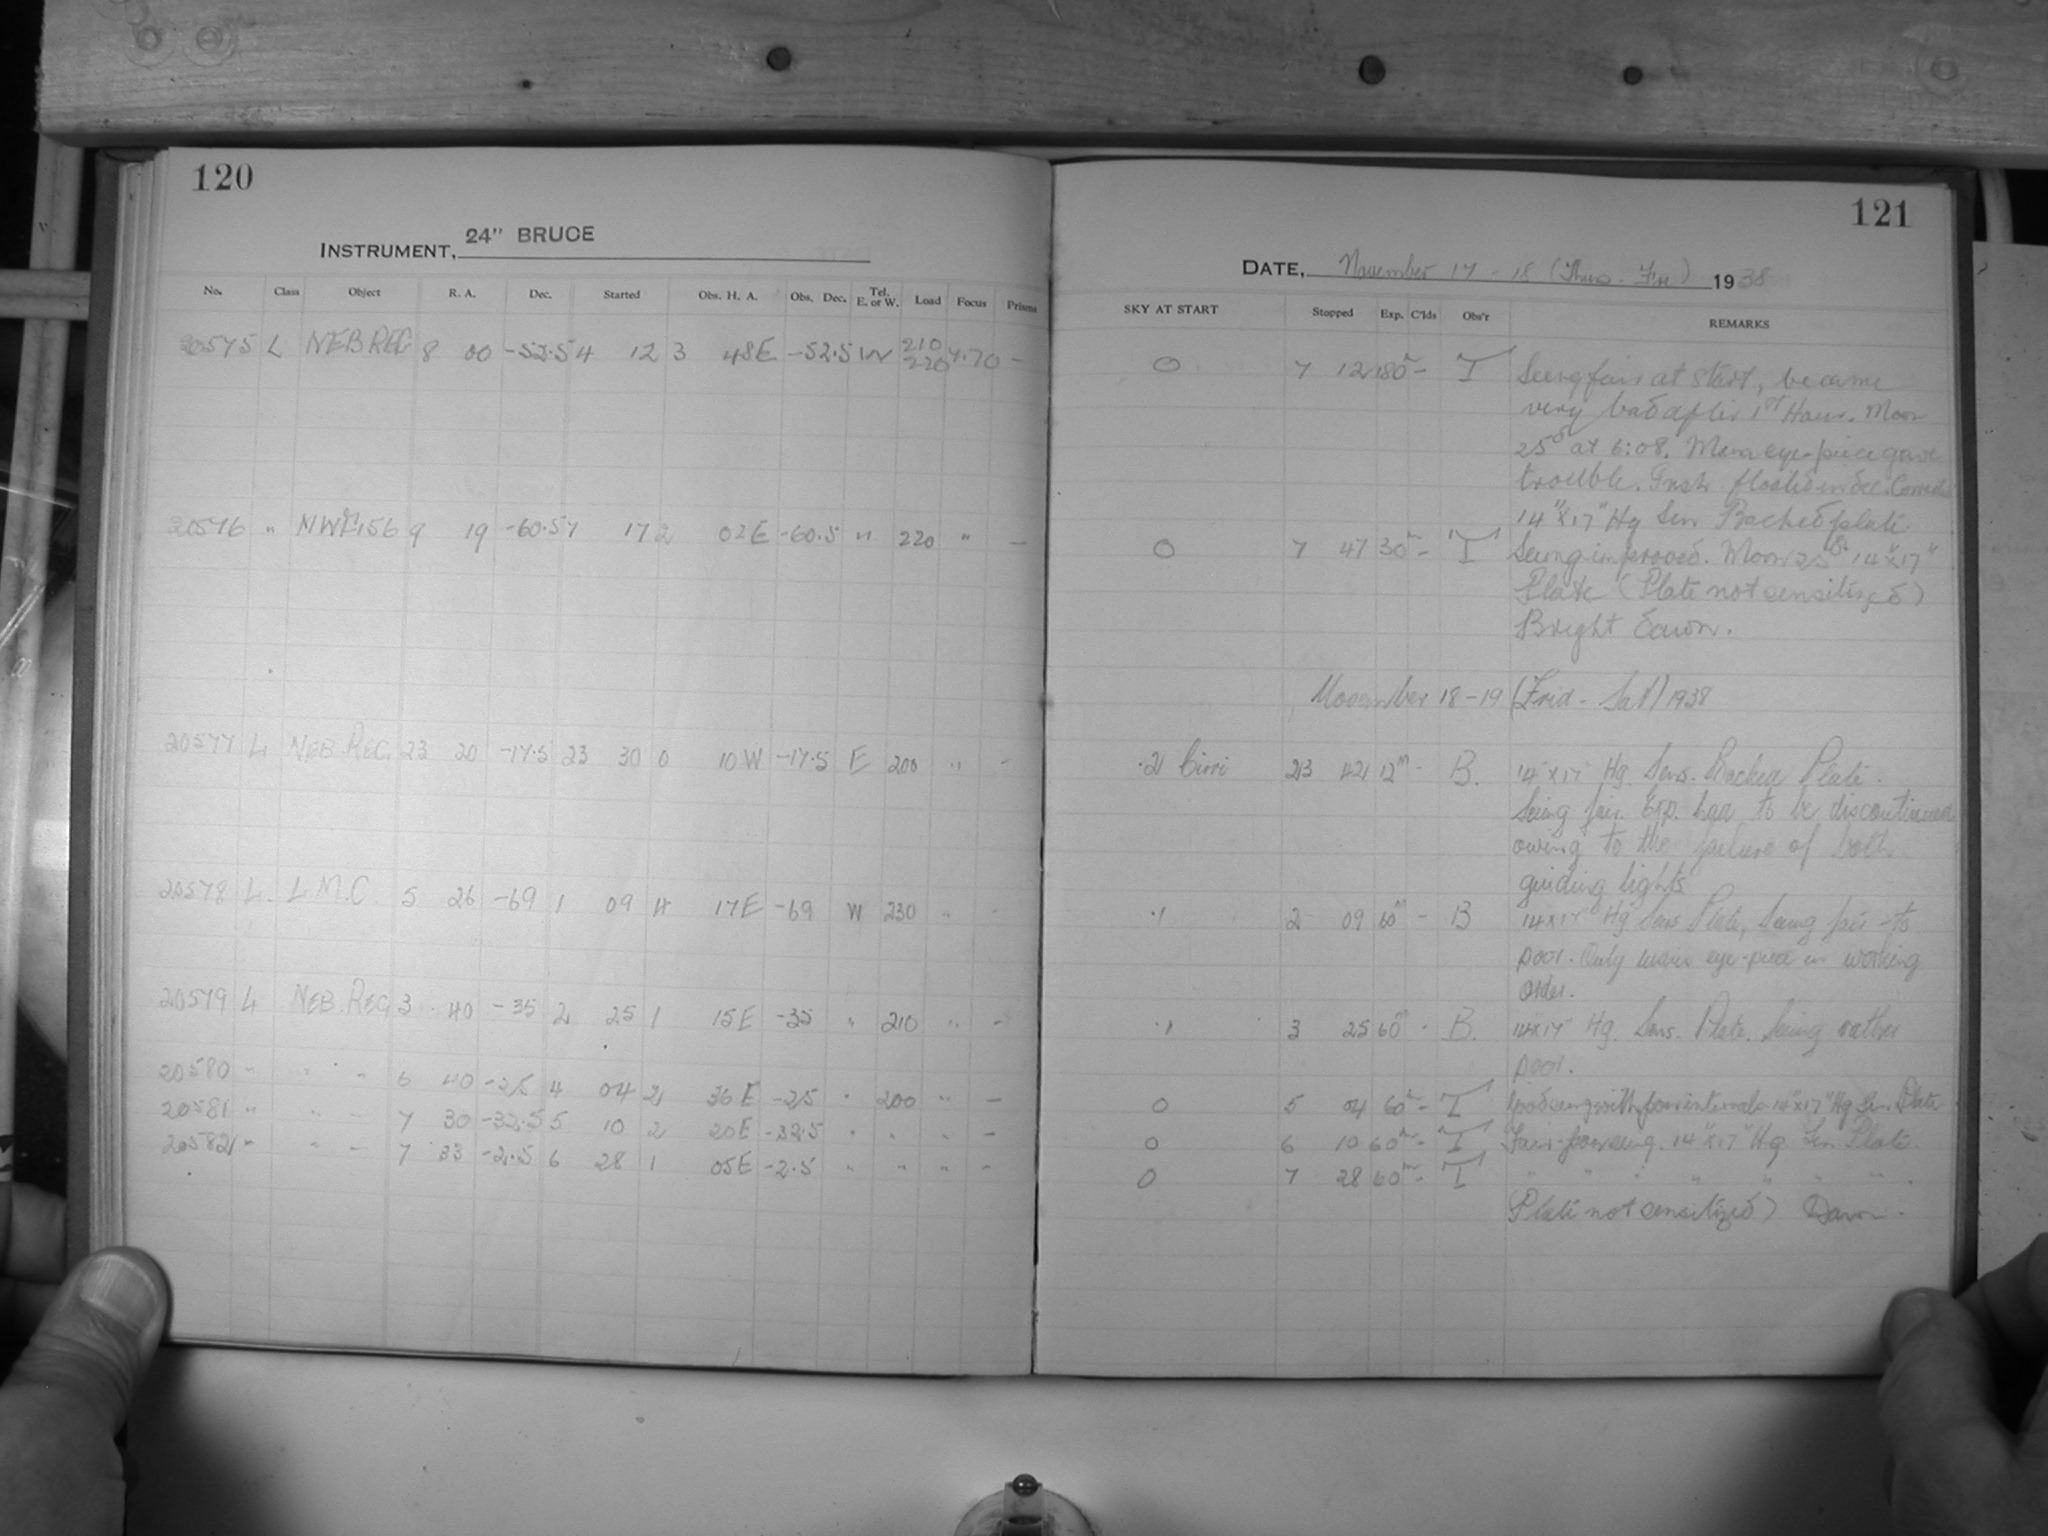 120
INSTRUMENT, 24" BRUCE
No. Class Object R. A. Dec. Started Obs. H. A. Obs. Dec. Tel. E. or W. Load Focus Prisms
20575 L NEB REG 8 00 -52.5 4 12 3 48E -52.5 W 210 220 7.70 -
20576 " 9 19 -60.5 7 17 2 02E -60.5 " 220 " -
20577 L NEB. REG. 23 20 -17.5 23 30 0 10W -17.5 E 200 " -
20578 L. L.M.C. 5 26 -69 1 09 4 17E -69 W 230 " -
20579 L NEB. REG 3 40 -35 2 25 1 15E -35 " 210 " -
20580 " " " 6 40 -25 4 04 2 36E -25 " 200 " -
20581 " " " 7 30 -32.5 5 10 2 20E -32.5 " " " -
20582 " " " 7 33 -2.5 6 28 1 05E -2.5 " " " "
121
DATE, November 17 - 18 (Thurs - Fri) 1938
SKY AT START Stopped Exp. C'lds Obs'r REMARKS
0 7 12 180m - T Seeing fair at start, became
very bad after 1st Hour. Moon
25d at 6:08. Main eye-piece gave
trouble. Inst. in dec.
14"x17" Hg Sen Backed plate
0 7 47 30m - T Seeing improved. Moon 25d 14"x17"
Plate (Plate not sensitized)
Bright dawn.
November 18-19 (Frid - Sat) 1938
.2 Cirri 23 42 12m - B. 14"x17" Hg. Sens. Backed Plate.
Seeing fair. Exp. had to be discontinued
owing to the failure of both
guiding lights
.1 2 09 60m - B 14"x17" Hg Sens Plate, Seeing fair to
poor. Only main eye-piece in working
order.
.1 3 25 60m - B. 14"x17" Hg. Sens. Plate. Seeing rather
poor.
0 5 04 60m - T Good seeing with poor intervals 14"x17" Hg Sen Plate
0 6 10 60m - T Fair-poor seeing. 14"x17" Hg Sen Plate
0 7 28 60m - T " " " " " " "
Plate not sensitized) Dawn.